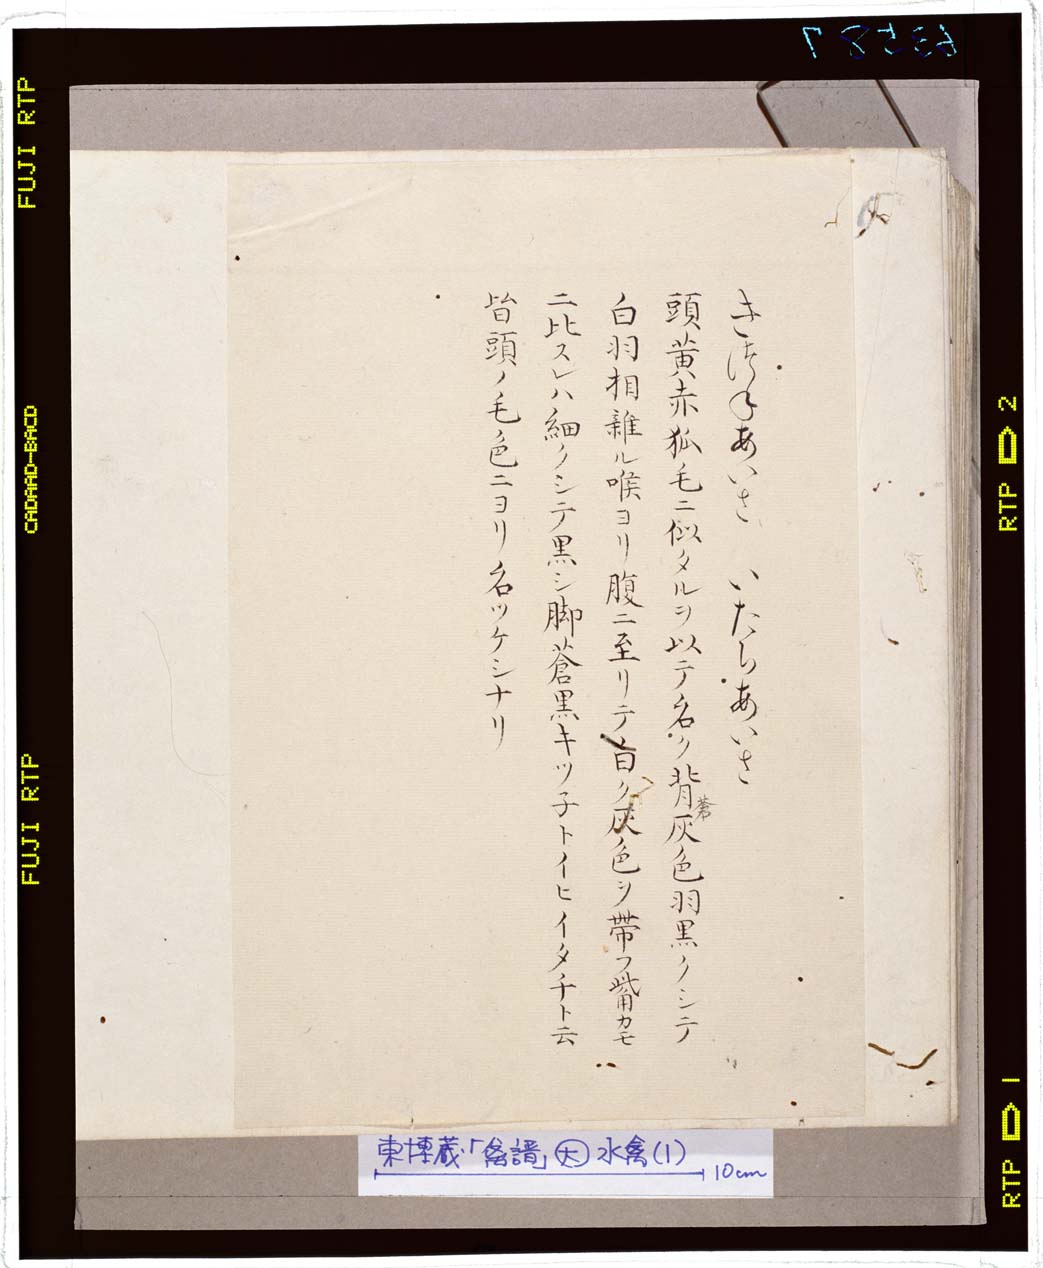 きつねあいさ　いたちあいさ
頭黄赤狐毛ニ似タルヲ以テ名ク背蒼灰色羽黒クシテ
白羽相雜ル喉ヨリ腹ニ至リテ白ク灰色ヲ帯フ觜カモ
ニ比スレハ細クシテ黒シ脚蒼黒キツ子トイヒイタチト云
皆頭ノ毛色ニヨリ名ツケシナリ
東博蔵「禽譜」大 水禽(1)
10cm
63587
FUJI RTP
CADAAD-BACD
FUJI RTP
RTP 2
RTP 1